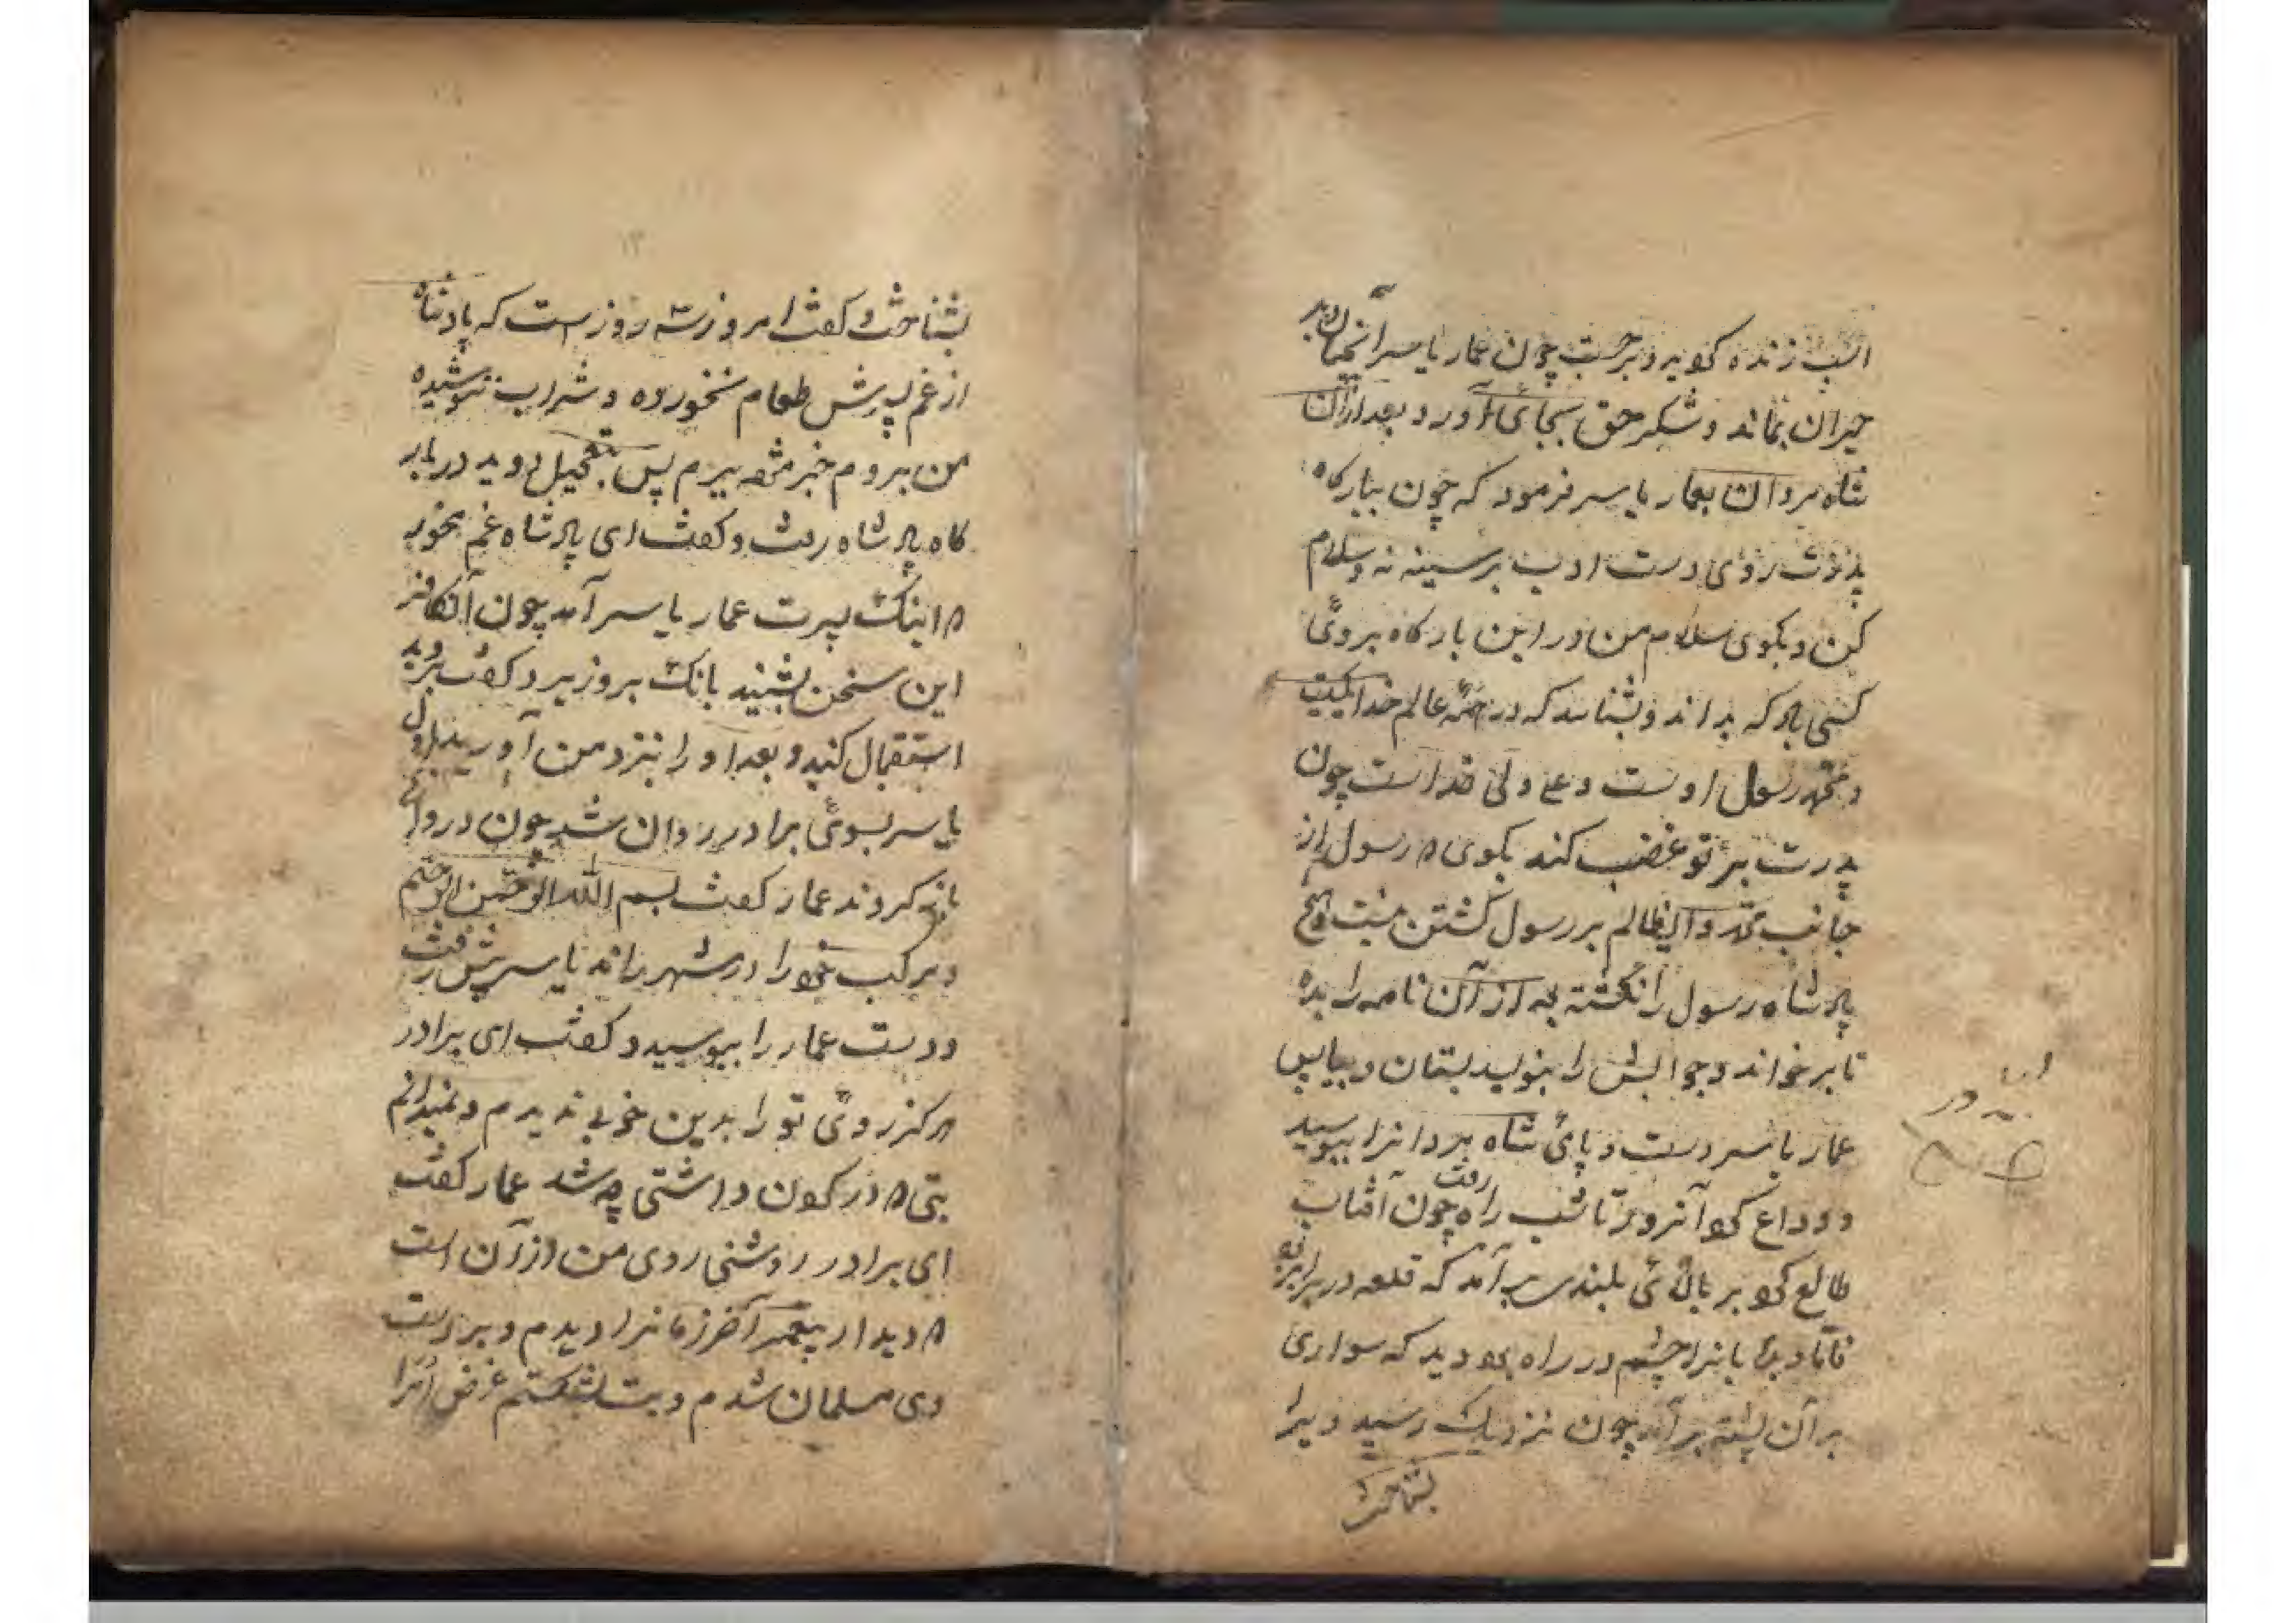 اسب زنده کرد و برجست چون عمار یاسر آنچنان دید
حیران بماند و شکر حق بجای آورد بعد ازان
شاه مردان بعمار یاسر فرمود که چون ببارکاه
پدرت روی دست ادب بر سینه نه و سلام
کن و بکوی سلام من در این بارکاه بروی
کسی باد که بداند و بشناسد که در همه عالم خدا یکیست
و محمد رسول اوست و علی ولی خداست چون
پدرت بر تو غضب کند بکوی که رسول از
جانب محمد و ایظالم بر رسول کشتن نیست هیچ
پادشاه رسول را نکشته به از آن نامه را بده
تا برخواند و جوابش را بنویسد بستان و بیا پس
عمار یاسر دست و پای شاه مردانرا ببوسید
و وداع کرد آنروز تا شب راه رفت چون آفتاب
طالع کرد بر بالای بلندی بر آمد که قلعه در برابر بود
در راه بود دید که سواری
بر آن پشته بر آمد چون نزدیک رسید ویرا
بشناخت
بشناخت و کفت امروز سه روز است که پادشاه
از غم پسرش طعام نخورده و شراب ننوشیده
من بروم خبر پس بتعجیل دوید در بار
کاه پادشاه رفت و کفت ای پادشاه غم مخور
که اینک پسرت عمار یاسر آمد چون آنکافر
این سخن بشنید بانک بر وزیر زد کفت بروید
استقبال کنید و بعد او را بنزد من آورید اول
یاسر بسوی برادر روان شد چون دروازه
باز کردند عمار کفت بسم الله الرحمن الرحیم
و مرکب خود را در شهر راند یاسر پیش رفت
و دست عمار را ببوسید و کفت ای برادر
هرکز روی تو را بدین خوبی ندیدم و نمیدانم
بتی که در کردن داشتی چه شد عمار کفت
ای برادر روشنی روی من از آن است
که دیدار پیغمبر آخر زمانرا دیدم و بر دست
وی مسلمان شدم و بت بشکستم غرض آنرا